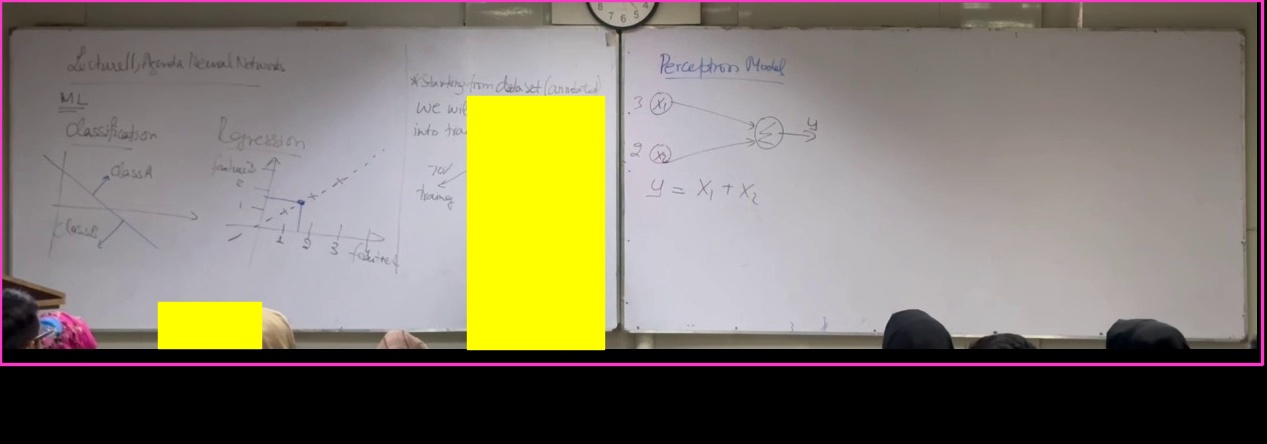 Lecture 11, Agenda Neural Networks
ML
Classification
Class A
Class B
Regression
feature 2
2
1
1 2 3 4
feature 1
*Starting from dataset (annotated)
we will
into
70%
training
7 6 5
Perceptron Model
3 X1
Σ y
2 X2
y = X1 + X2